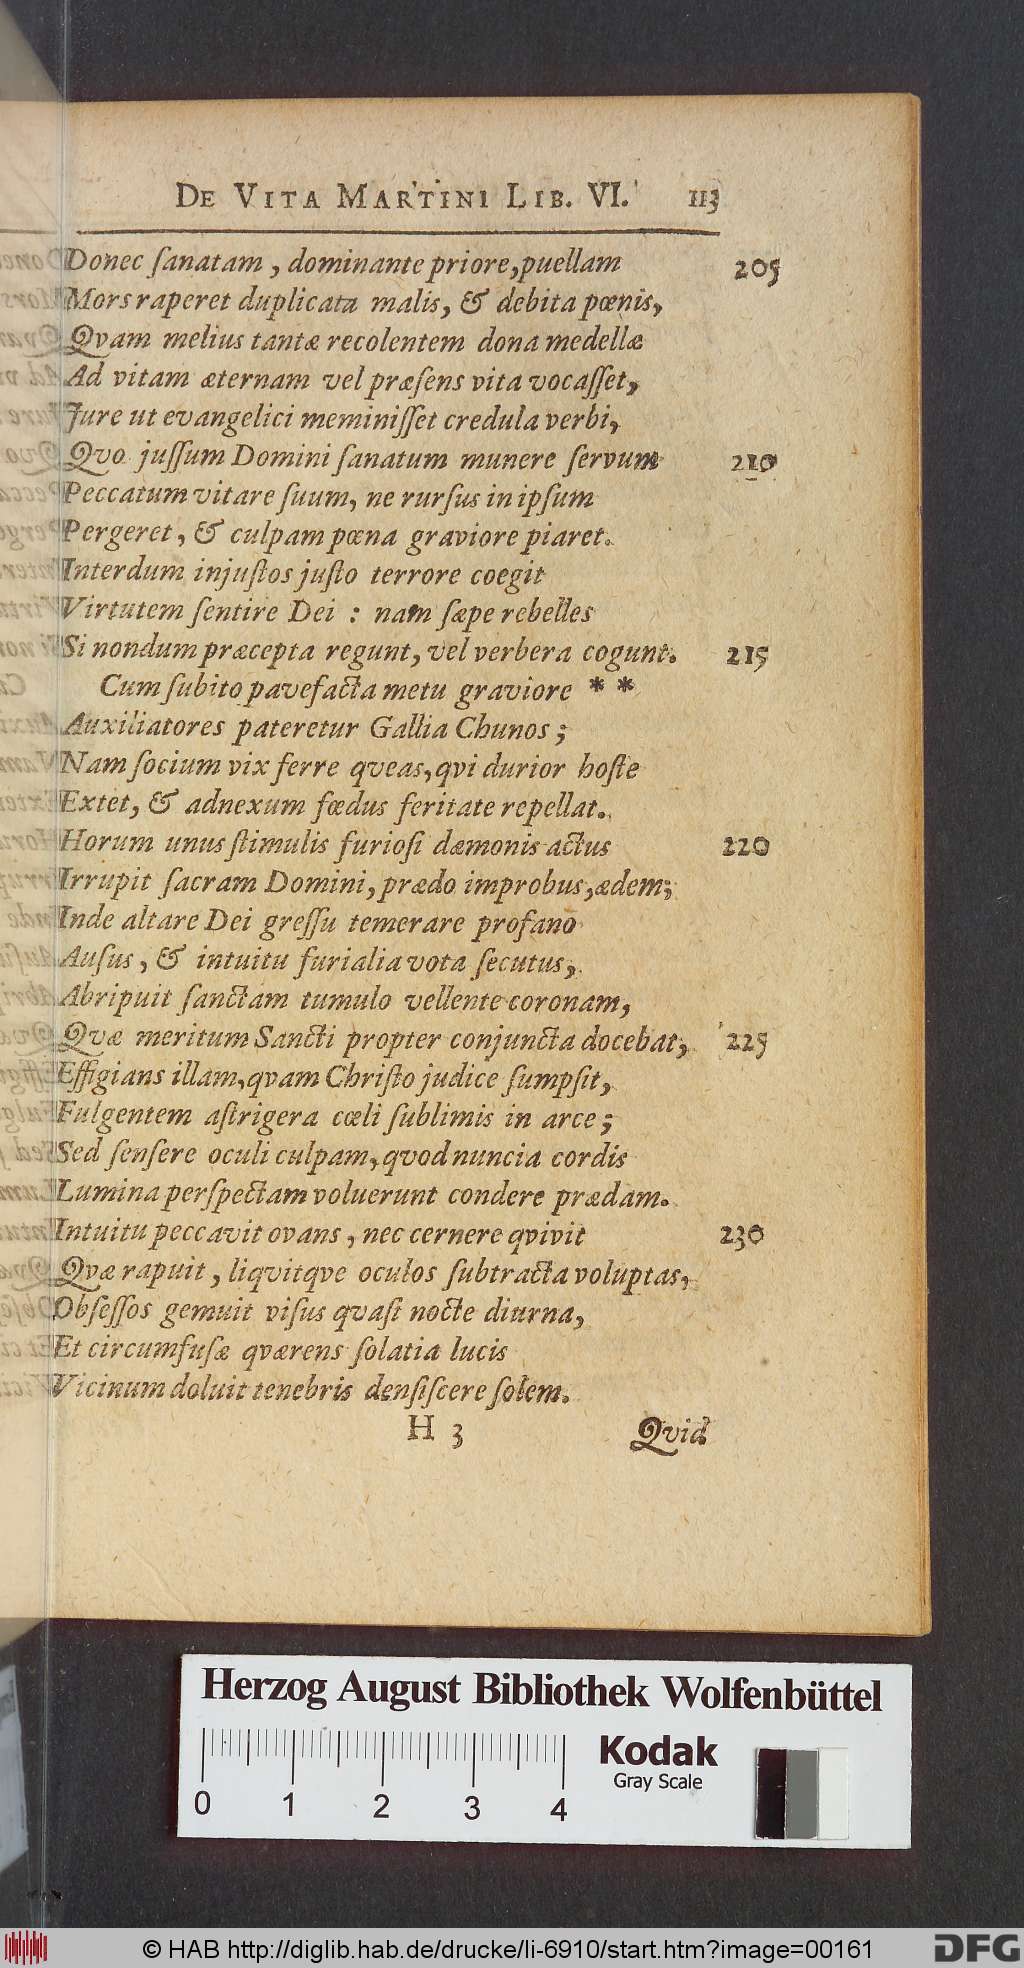 DE VITA MARTINI LIB. VI. 113
Donec ſanatam, dominante priore, puellam 205
Mors raperet duplicata malis, & debita pœnis,
Qvam melius tantæ recolentem dona medellæ
Ad vitam æternam vel præſens vita vocaſſet,
Jure ut evangelici meminiſſet credula verbi,
Qvo juſſum Domini ſanatum munere ſervum 210
Peccatum vitare ſuum, ne rurſus in ipſum
Pergeret, & culpam pœna graviore piaret.
Interdum injuſtos juſto terrore coegit
Virtutem ſentire Dei : nam ſæpe rebelles
Si nondum præcepta regunt, vel verbera cogunt. 215
Cum ſubito pavefacta metu graviore * *
Auxiliatores pateretur Gallia Chunos ;
Nam ſocium vix ferre qveas, qvi durior hoſte
Extet, & adnexum fœdus feritate repellat.
Horum unus ſtimulis furioſi dæmonis actus 220
Irrupit ſacram Domini, prædo improbus, ædem;
Inde altare Dei greſſu temerare profano
Auſus, & intuitu furialia vota ſecutus,
Abripuit ſanctam tumulo vellente coronam,
Qvæ meritum Sancti propter conjuncta docebat, 225
Effigians illam, qvam Chriſto judice ſumpſit,
Fulgentem aſtrigera cœli ſublimis in arce ;
Sed ſenſere oculi culpam, qvod nuncia cordis
Lumina perſpectam voluerunt condere prædam.
Intuitu peccavit ovans, nec cernere qvivit 230
Qvæ rapuit, liqvitqve oculos ſubtracta voluptas,
Obſeſſos gemuit viſus qvaſi nocte diurna,
Et circumfuſæ qværens ſolatia lucis
Vicinum doluit tenebris denſiſcere ſolem.
H 3 Qvid
Herzog August Bibliothek Wolfenbüttel
Kodak
Gray Scale
0 1 2 3 4
© HAB http://diglib.hab.de/drucke/li-6910/start.htm?image=00161
DFG